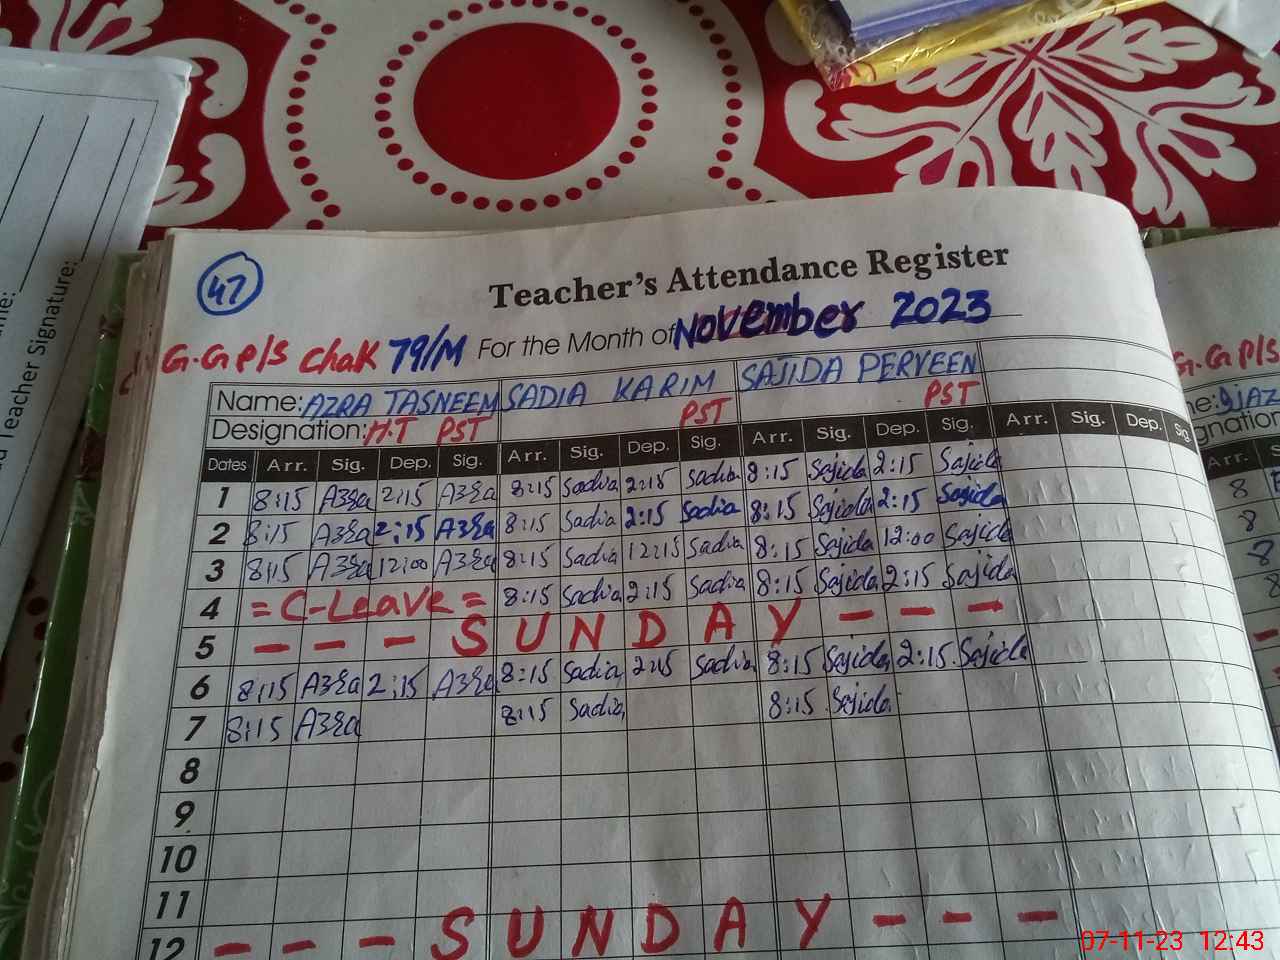 47
Teacher's Attendance Register
G.G P/S Chak 79/M For the Month of November 2023
Name: AZRA TASNEEM SADIA KARIM SAJIDA PERVEEN
Designation: H.T PST PST PST
Dates Arr. Sig. Dep. Sig. Arr. Sig. Dep. Sig. Arr. Sig. Dep. Sig. Arr. Sig. Dep. Sig.
1 8:15 Azra 2:15 Azra 8:15 Sadia 2:15 Sadia 8:15 Sajida 2:15 Sajida
2 8:15 Azra 2:15 Azra 8:15 Sadia 2:15 Sadia 8:15 Sajida 2:15 Sajida
3 8:15 Azra 12:00 Azra 8:15 Sadia 12:15 Sadia 8:15 Sajida 12:00 Sajida
4 = C-Leave = 8:15 Sadia 2:15 Sadia 8:15 Sajida 2:15 Sajida
5 - - - S U N D A Y - - -
6 8:15 Azra 2:15 Azra 8:15 Sadia 2:15 Sadia 8:15 Sajida 2:15 Sajida
7 8:15 Azra 8:15 Sadia 8:15 Sajida
8
9
10
11
12 - - - S U N D A Y - - -
Teacher Signature:
G.G P/S
Arr.
8
8
8
8
07-11-23 12:43